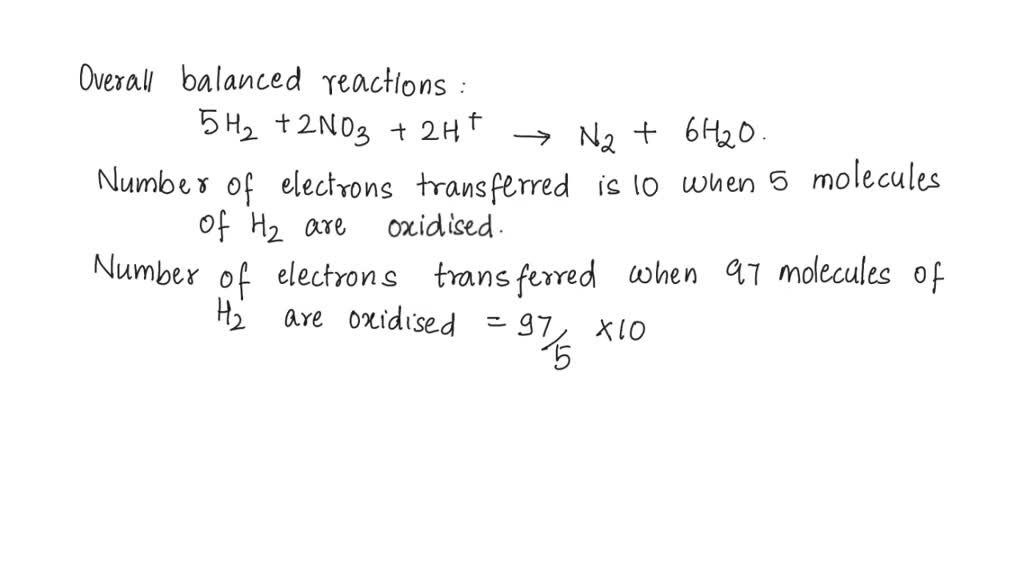 Overall balanced reactions :
5H₂ + 2NO₃ + 2H⁺ → N₂ + 6H₂O.
Number of electrons transferred is 10 when 5 molecules
of H₂ are oxidised.
Number of electrons transferred when 97 molecules of
H₂ are oxidised = 97/5 ×10